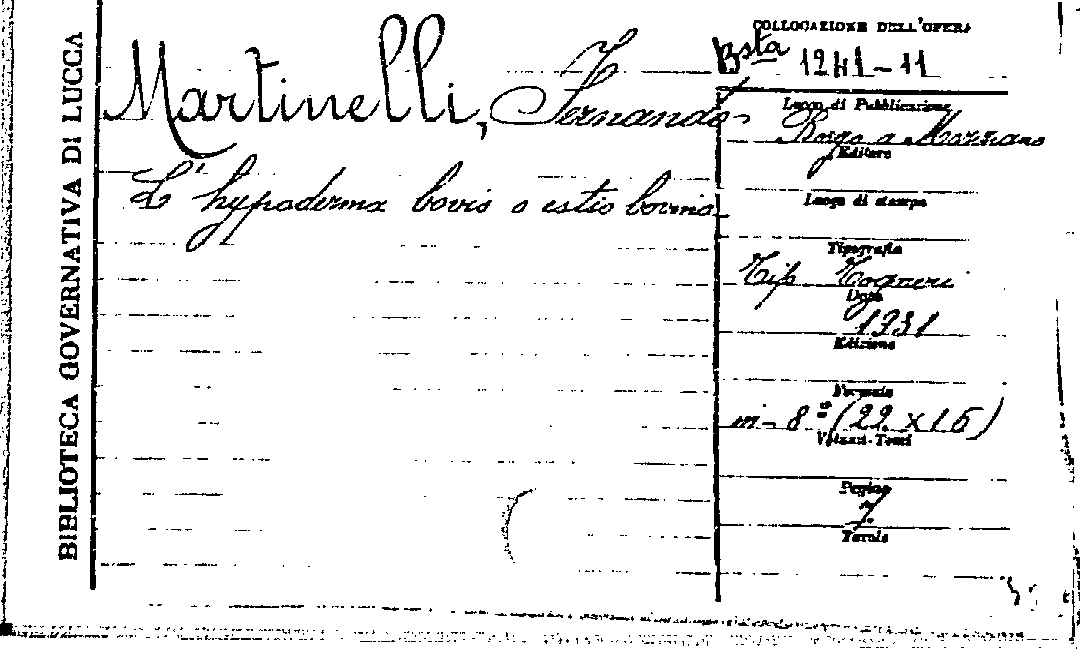 BIBLIOTECA GOVERNATIVA DI LUCCA
Martinelli, Fernando
L'hypoderma bovis o estro bovino
COLLOCAZIONE DELL'OPERA
Bsta 1241-11
Luogo di Pubblicazione
Borgo a Mozzano
Editore
Luogo di stampa
Tipografia
Tip Togneri
Data
1931
Edizione
Formato
in-8º (22 x 16)
Volumi-Tomi
Pagine
7
Tavole